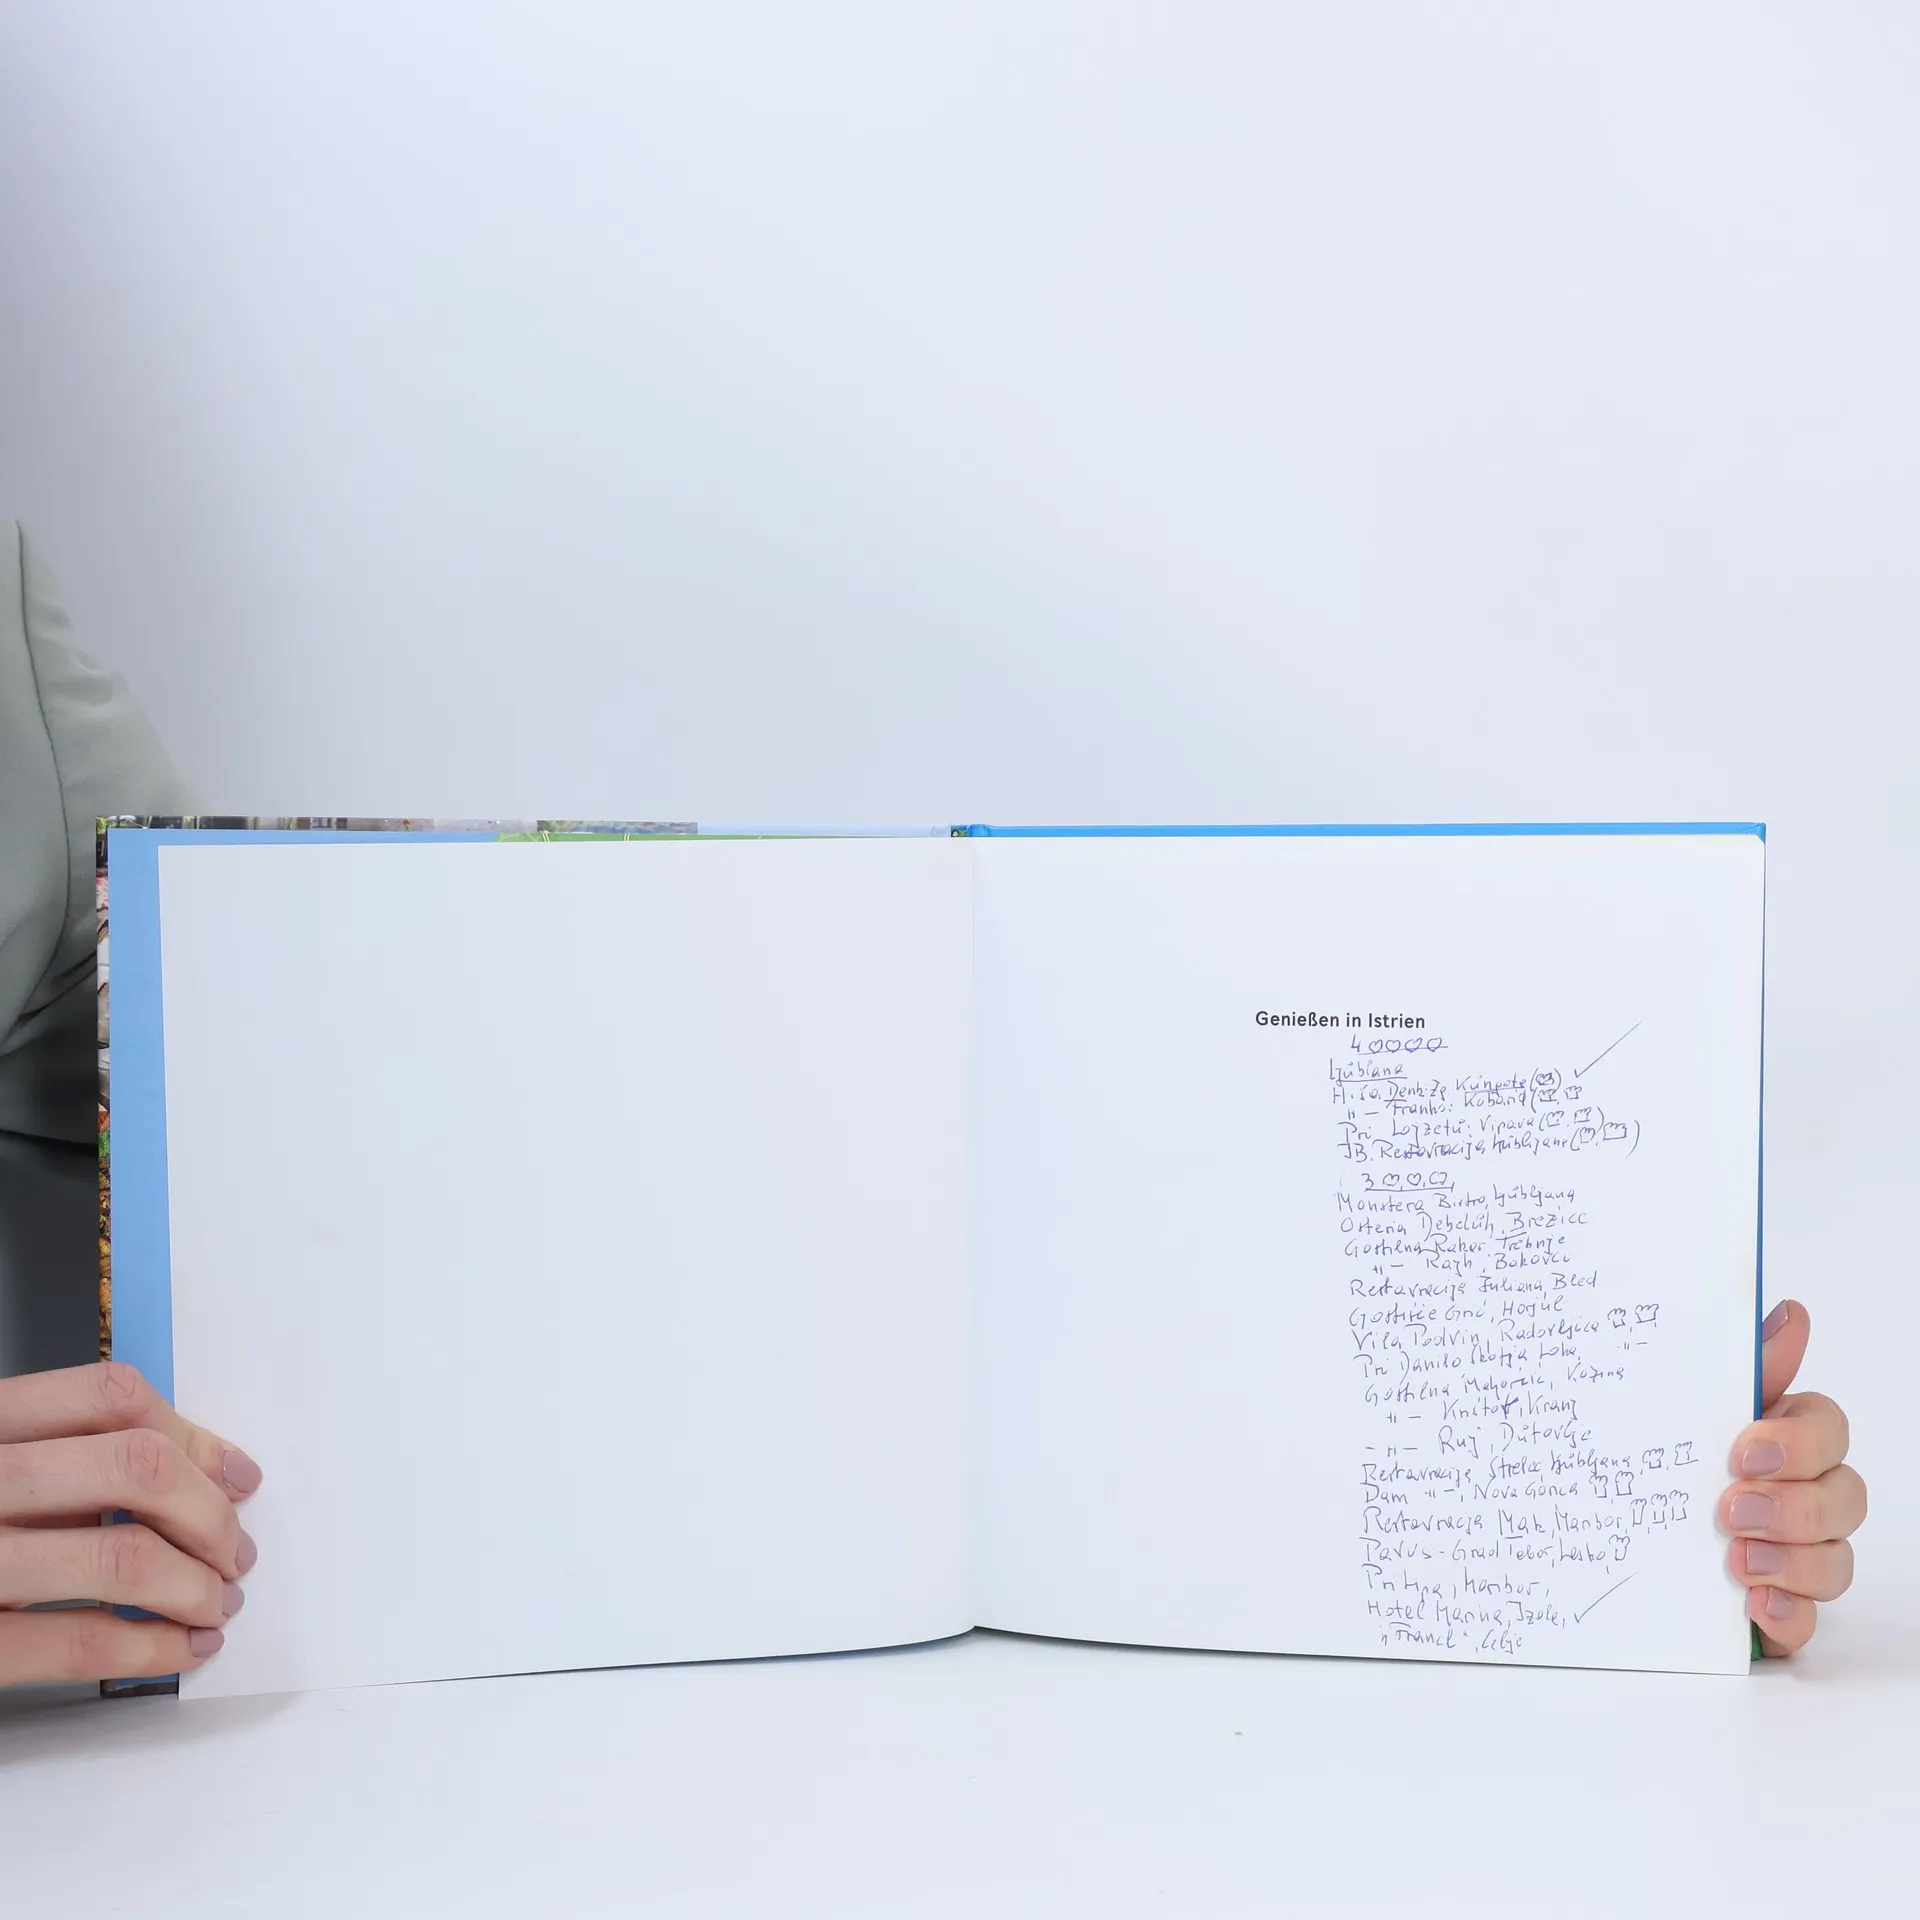 Genießen in Istrien
4
Ljŭblana
Hiša Denk: Zg. Kŭngota
" — Franko: Kobarid
Pri Lojzetŭ: Vipava
JB. Restavracija Ljŭbljana
3
Monstera Bistro, Ljŭbljana
Osteria Debelŭh, Brežice
Gostilna Rakar Trebnje
" — Rajh, Bakovci
Restavracija Juliana, Bled
Gostišče Grič, Horjŭl
Vila Podvin, Radovljica
Pri Danilo Škofja Loka, "—
Gostilna Mahorčič, Kozina
" — Krištof, Kranj
- " — Ruj, Dŭtovlje
Restavracija Strelec Ljŭbljana
Dam "—, Nova Gorica
Restavracija Mak, Maribor
Pavus - Grad Tabor, Laško
Pri Lipa, Maribor,
Hotel Marina, Izola,
"Francl", Celje